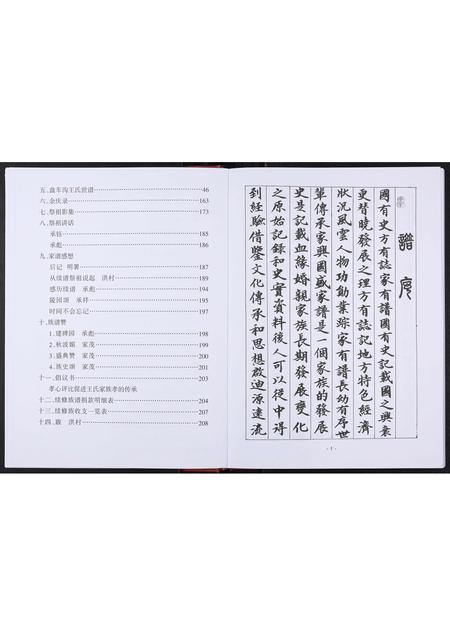 五、盘车沟王氏世谱 46
六、余庆录 163
七、祭祖影集 173
八、祭祖讲话
承钰 185
承彪 186
九、家谱感想
后记 明署 187
从续谱祭祖说起 洪村 189
感历续谱 承彪 194
陵园颂 承祥 195
时间不会忘记 197
十、族谱赞
1.建碑园 承彪 198
2.秋波媚 家茂 199
3.盛典赞 家茂 200
4.族史颂 家茂 201
十一、倡议书 203
孝心评比促进王氏家族孝的传承
十二、续修族谱捐款明细表 204
十三、续修族收支一览表 207
十四、跋 洪村 208
譜序
國有史方有誌家有譜國有史記載國之興衰
更替曉發展之理方有誌記地方特色經濟
狀況風雲人物功勛業踪家有譜長幼有序世
輩傳承家興國盛家譜是一個家族的發展
史是記載血緣婚親家族長期發展變化
之原始記錄和史實資料後人可以從中得
到經驗借鑒文化傳承和思想啟迪源遠流
-1-